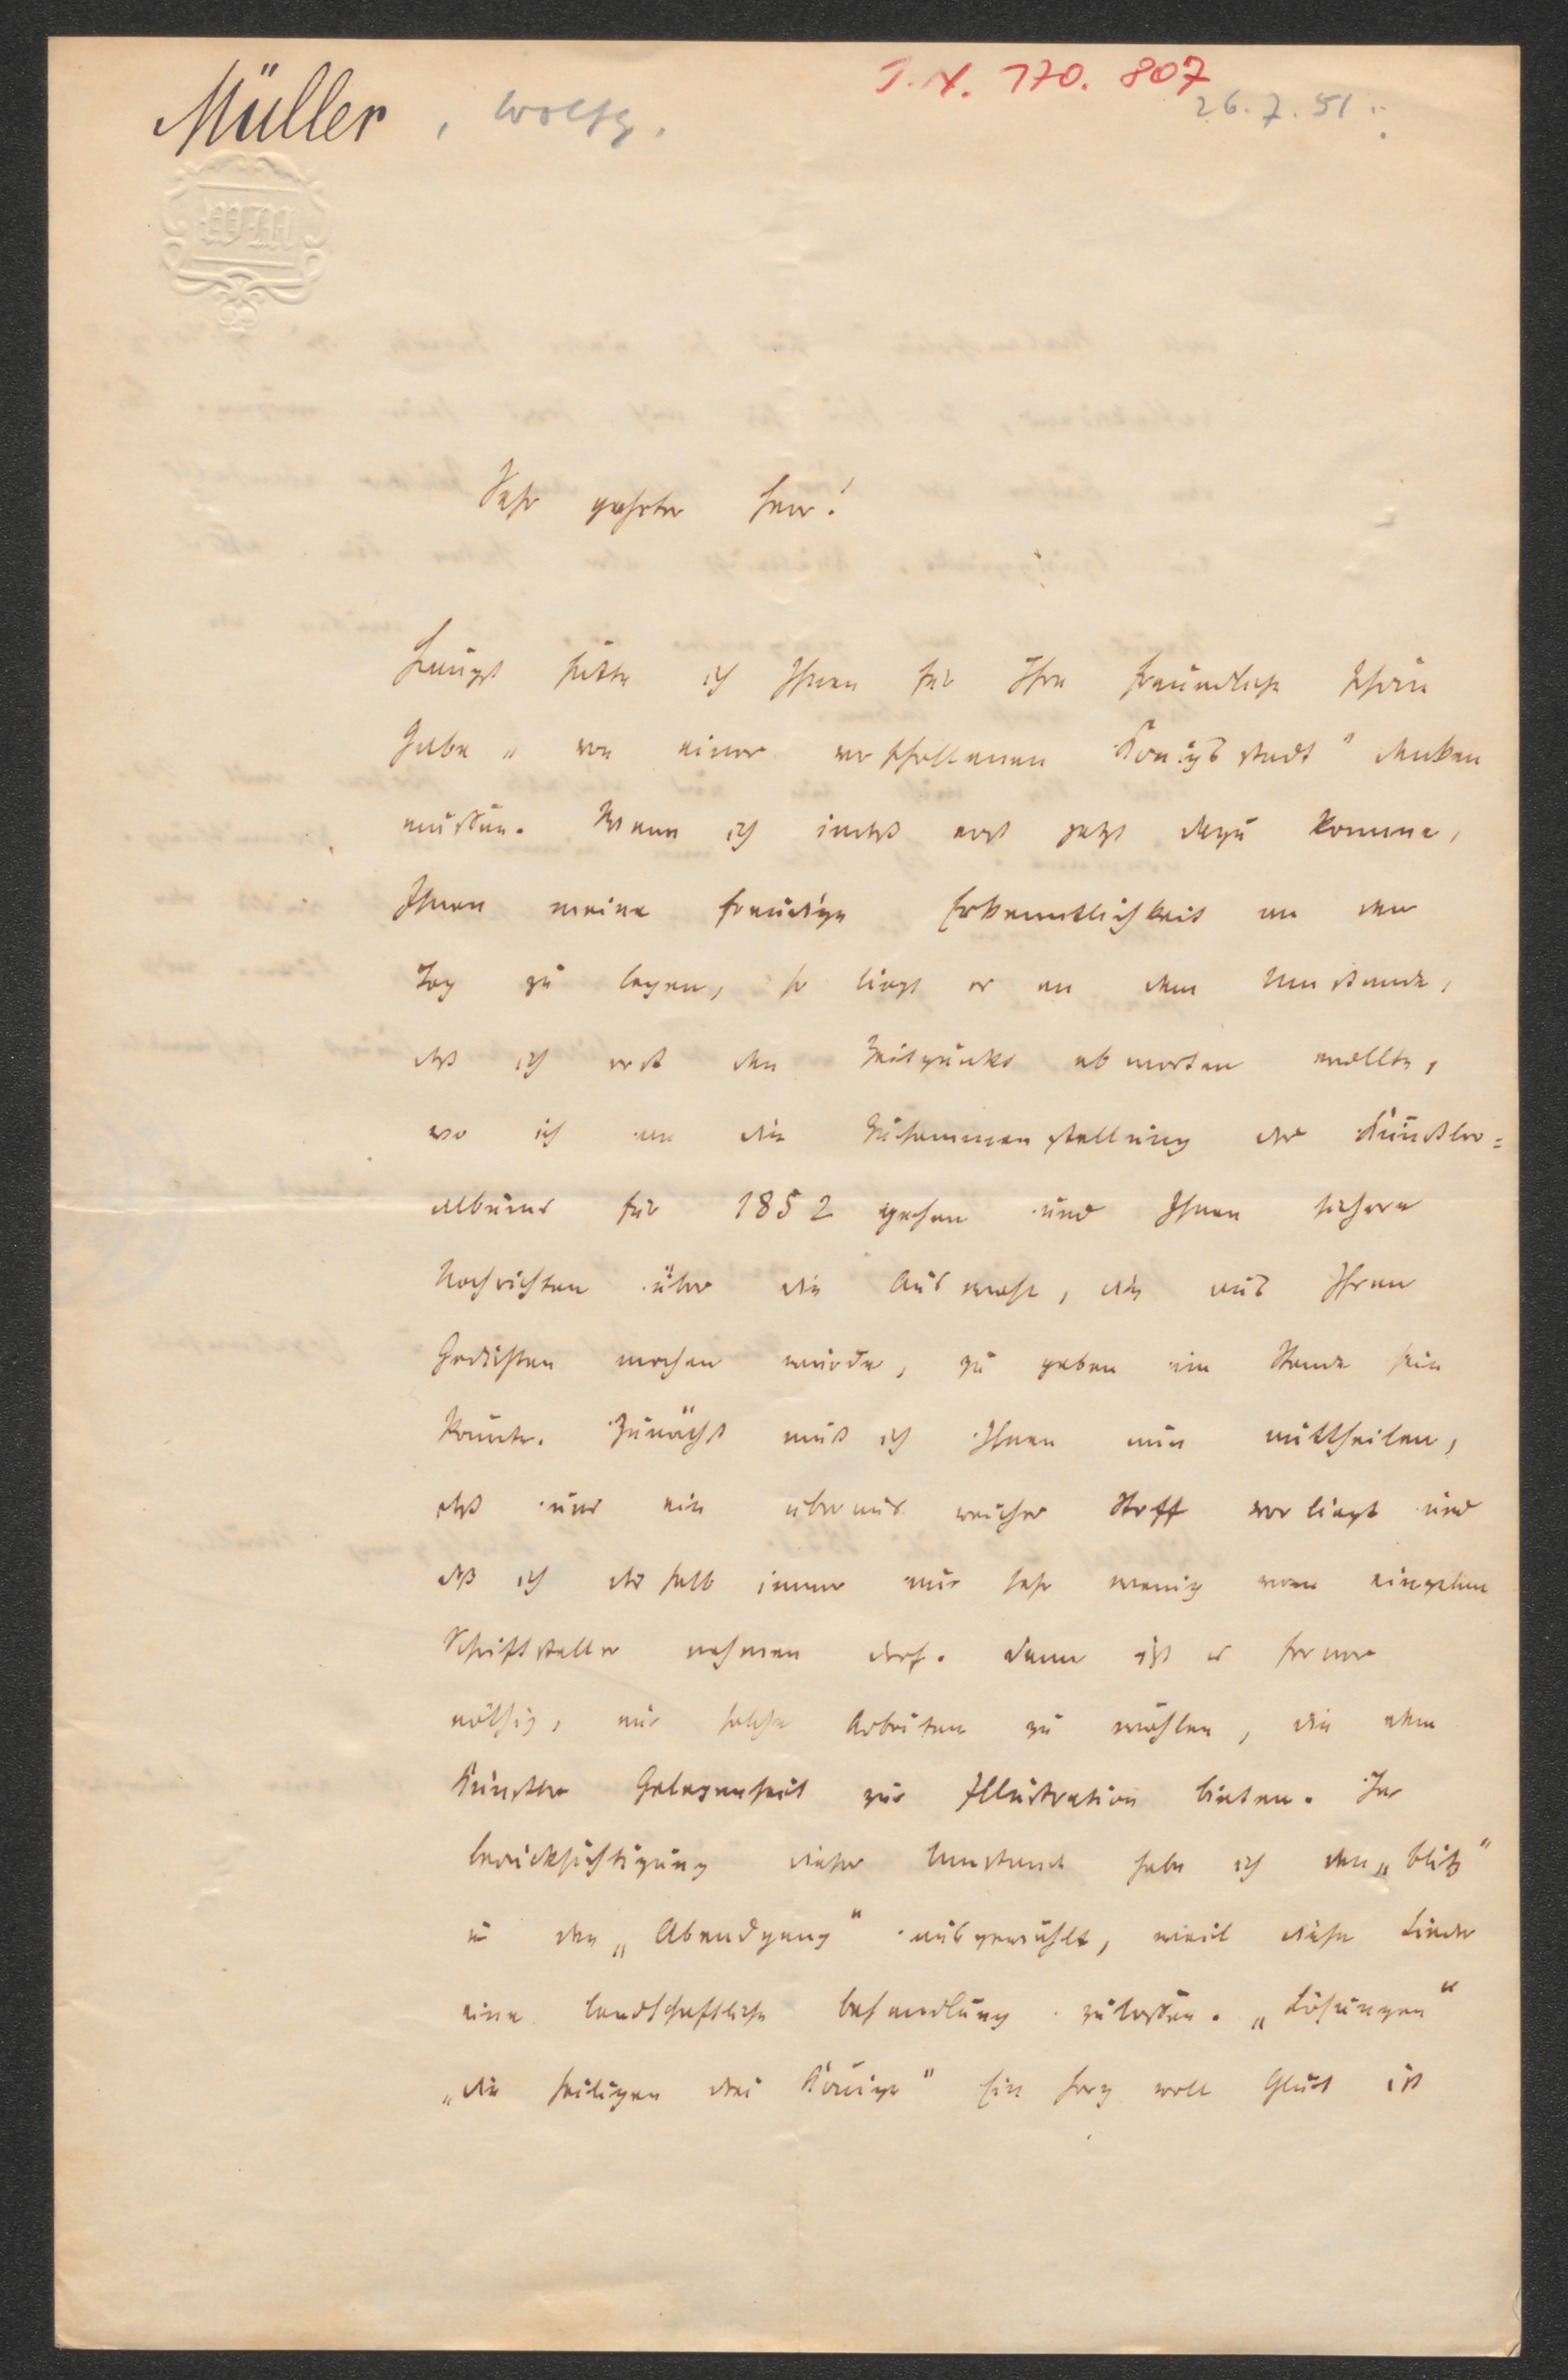 Müller, Wolfg.
I. N. 170. 807
26. 7. 51.
WM
Sehr geehrter Herr!
Längst hätte ich Ihnen für Ihre freundliche schöne
Gabe „ von einer verschollenen Königsstadt " danken
müssen. Wenn ich indeß erst jetzt dazu komme,
Ihnen meine freudige Erkenntlichkeit an den
Tag zu legen, so liegt es an dem Umstande,
daß ich erst den Zeitpunkt abwarten wollte,
wo ich an die Zusammenstellung des Künstler=
albums für 1852 gehen und Ihnen sichere
Nachrichten über die Auswahl, die aus Ihren
Gedichten machen würde, zu geben im Stande sein
könnte. Zunächst muß ich Ihnen nun mittheilen,
daß uns ein überaus reicher Stoff vorliegt und
daß ich deshalb immer nur sehr wenig vom einzelnen
Schriftsteller nehmen darf. Dann ist es ferner
nöthig, nur solche Arbeiten zu wählen, die dem
Künstler Gelegenheit zur Illustration bieten. In
Berücksichtigung dieser Umstände habe ich den „Blitz"
u den „Abendgang" ausgewählt, weil diese Lieder
eine landschaftliche Behandlung zulassen. „Lösungen"
„die heiligen drei Könige" Ein Herz voll Glut ist